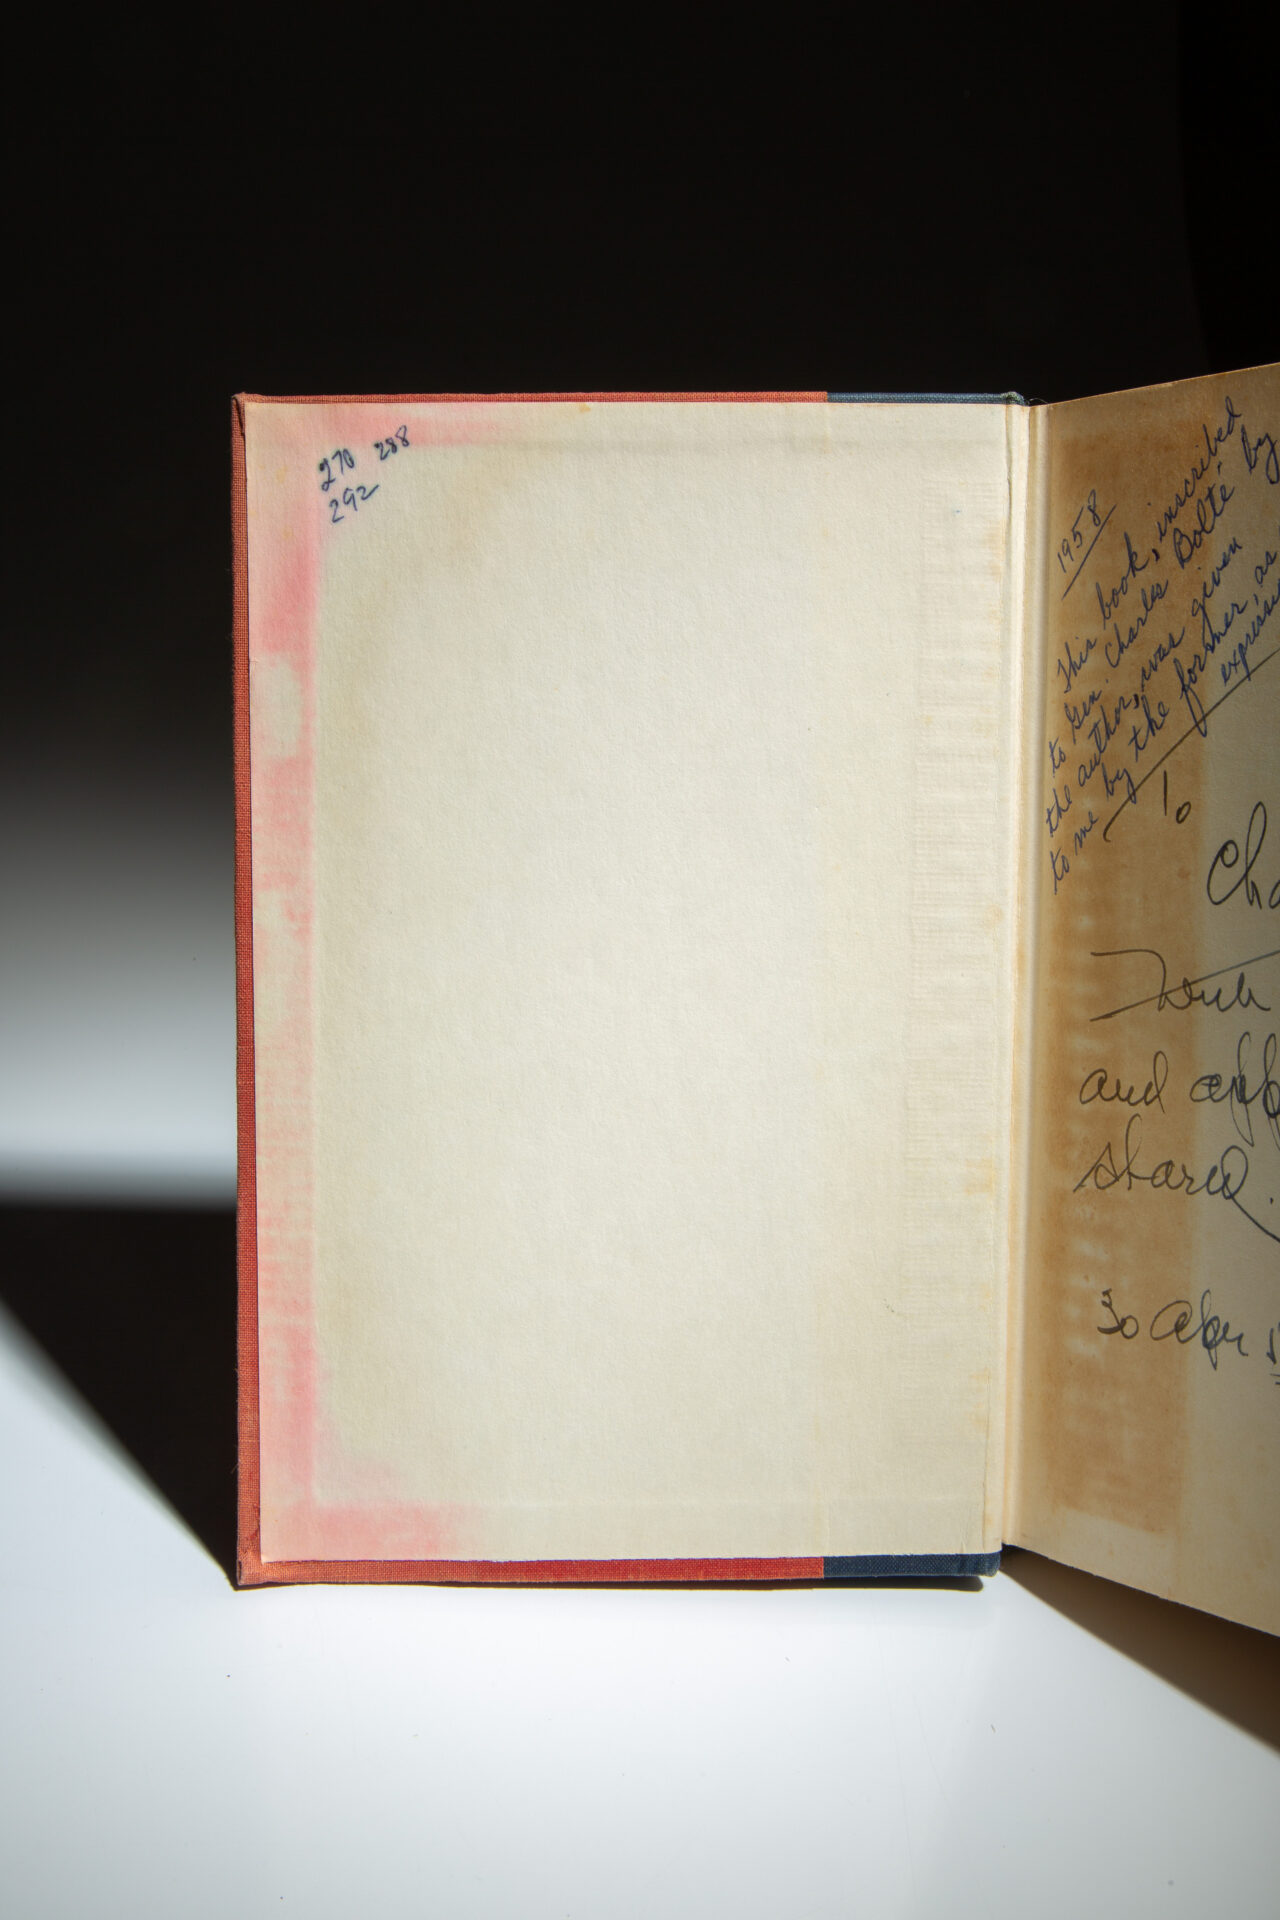 270 288
292
1958
This book, inscribed
to Gen. Charles Bolté by
the author, was given
to me by the former, as
To
Cha
With
and app
shared.
30 Apr 5